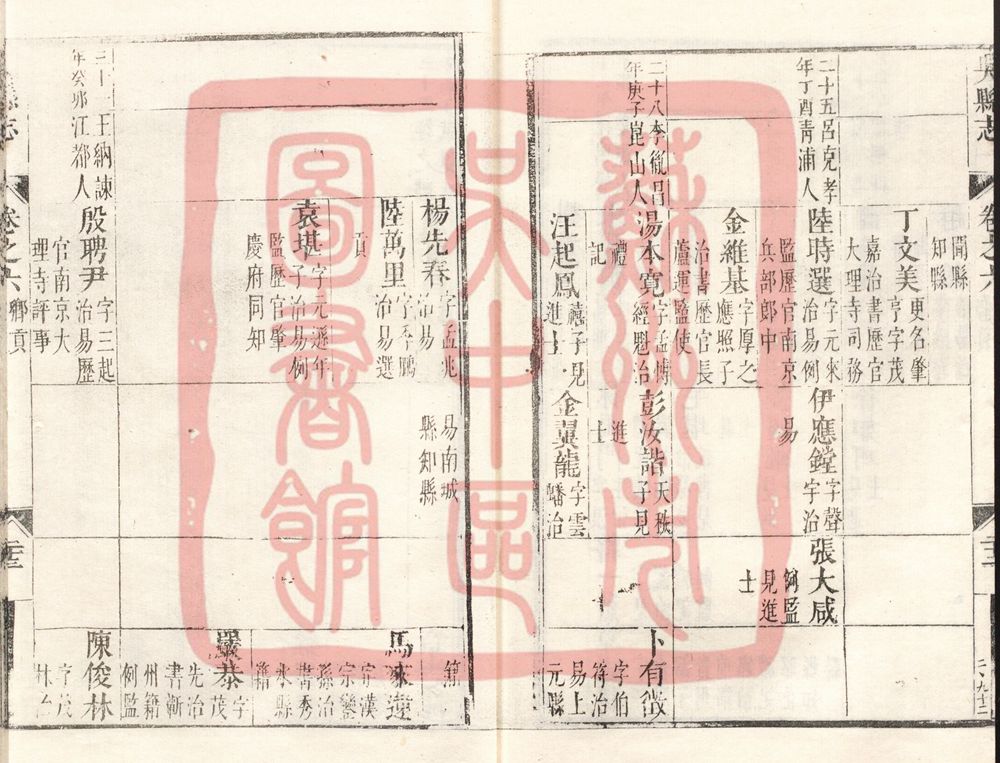 吳縣志
卷之六
聞縣
知縣
丁文美
更名肇
亨字茂
嘉治書歷官
大理寺司務
二十五
年丁酉
呂克孝
青浦人
陸時選
字元來
治易例
監歷官南京
兵部郎中
伊應鏜
字聲
宇治
易
張大咸
例監
見進
士
金維基
字厚之
應照子
治書歷官長
蘆運監使
二十八
年庚子
李胤昌
崑山人
湯本寬
字孟博
經魁治
禮
記
彭汝諧
天秩
子見
進
士
卜有徵
字伯
符治
易上
元縣
汪起鳳
禧子見
進士
金翼龍
字雲
蟠治
易南城
縣知縣
籍
楊先春
字孟兆
治易
陸萬里
字季鵬
治易選
貢
馬來遠
字漢
宗鑾
孫治
書秀
水縣
籍
袁堪
字元遜年
子治易例
監歷官肇
慶府同知
嚴泰
字
茂
先治
書蘄
州籍
例監
三十一
年癸卯
王納諫
江都人
殷聘尹
字三起
治易歷
官南京大
理寺評事
陳俊林
字茂
林治
卷之六
鄉貢